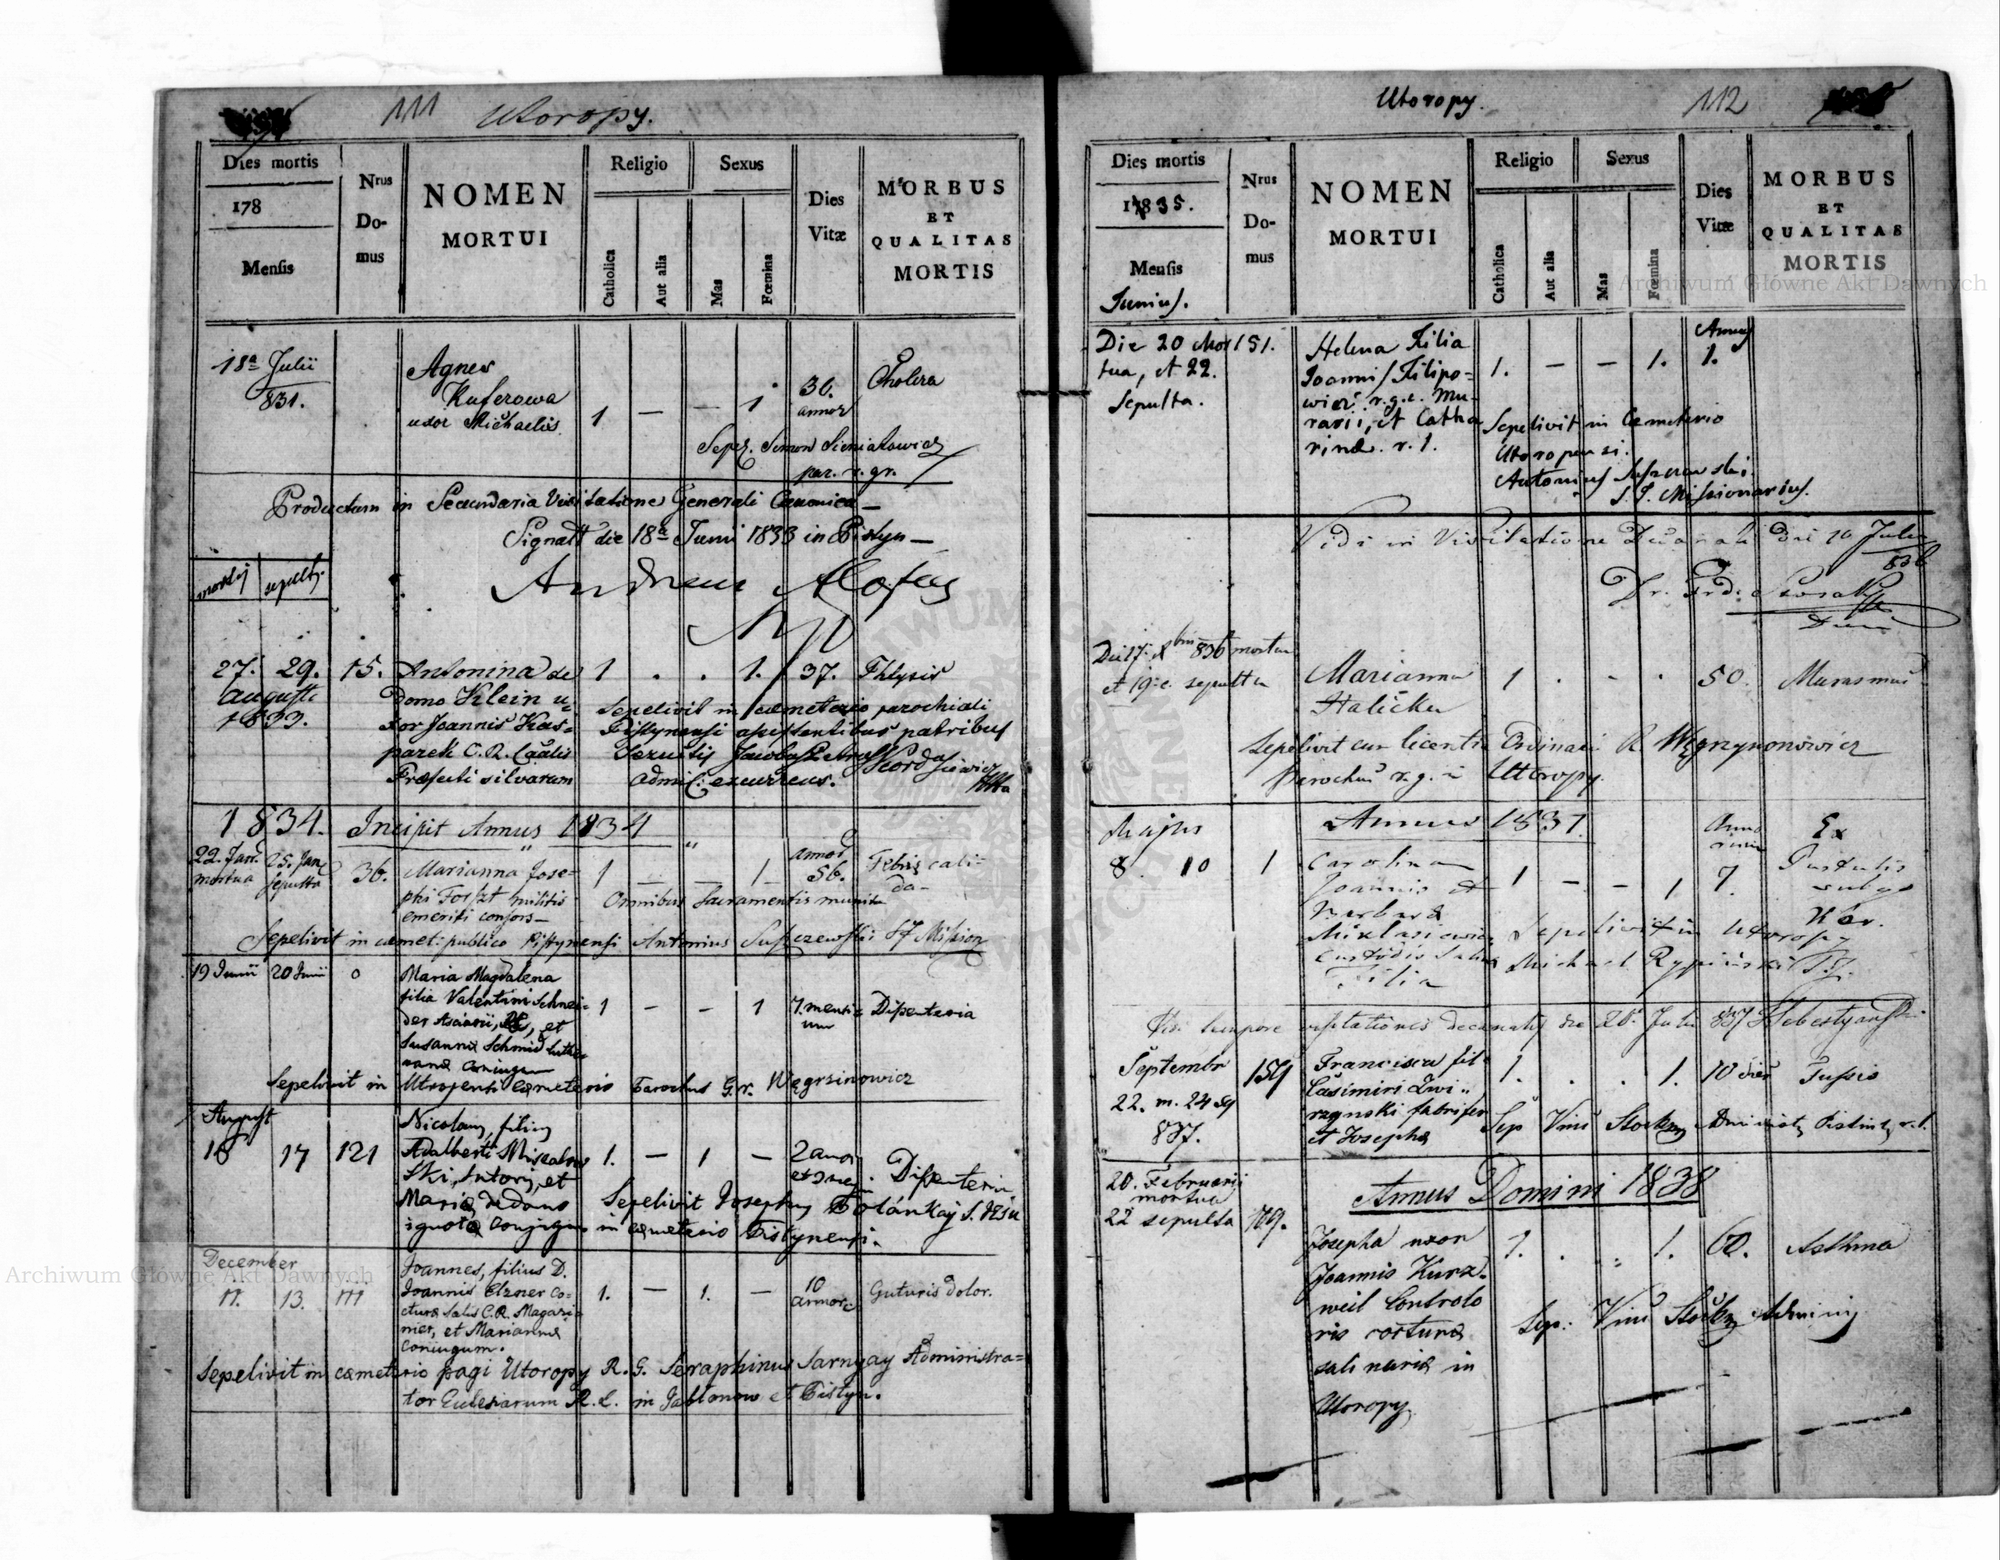 111 Utoropy.
Dies mortis
178
Mensis
Nrus Do-mus
NOMEN
MORTUI
Religio
Catholica
Aut alia
Sexus
Mas
Fœmina
Dies Vitæ
MORBUS
ET
QUALITAS
MORTIS
18a Julii
831.
Agnes
Kuferowa
uxor Michaelis
1 — — 1
36.
annor
Cholera
Sepel. Simon Sieniatowicz
par. r. gr.
Productum in Secundaria Visitatione Generali Canonica —
Signatt die 18a Junii 1833 in Pistyn —
Andreas
27. 29. 15. Antonina de 1 . . 1. 37. Phtysis
Augusti
1833.
Domo Klein u-
xor Joannis Kas-
parek C. R.
Præfecti silvarum
Sepelivit in cœmeterio parochiali
Pistynensi assistentibus patribus
Jezuitis
Admi: excurrens.
1834. Incipit Annus 1834
22. Jan. mortua
25. Jan. sepulta
36. Marianna Jose-
phi militis
emeriti consors —
1 — — 1
annor
56.
Febris cali-
da —
Omnibus Sacramentis munita
Sepelivit in cæmet: publico Pistynensi Antonius Suszczewski SJ Mission
19 Junii 20 Junii 0
Maria Magdalena
filia Valentini Schnei-
der et
Susanna Schmid
1 — — 1
7. mensi-
um
Disenteria
Sepelivit in Utropensi Cæmeterio Parochus Gr. Węgrzinowicz
August
16 17 121
Nicolaus, filius
Adalberti
ski, Sutoris, et
Mariæ, de domo
ignota Conjugum
1. — 1 —
2 anor
Disenteria
Sepelivit Josephus S. Jesu
in cæmeterio Pistynensi.
December
11. 13. 111
Joannes, filius D.
Joannis Elzner Co-
cturæ Salis C.R. Magazi-
nier, et Mariannæ
Coniugum.
1. — 1. —
10
annor
Guturis dolor.
Sepelivit in cæmeterio pagi Utoropy R. G. Seraphinus Sarnyay Administra-
tor Eclesiarum R. L. in Jablonow et Pistyn.
Utoropy. 112
Dies mortis
1835.
Mensis
Junius.
Nrus Do-mus
NOMEN
MORTUI
Religio
Catholica
Aut alia
Sexus
Mas
Fœmina
Dies Vitæ
MORBUS
ET
QUALITAS
MORTIS
Die 20 Mor
tua, et 22.
Sepulta.
151.
Helena Filia
Joannis Filipo-
wicz r.g.c. Mu-
rarii, et Catha
rinæ r. l.
1. — — 1.
Annus
1.
Sepelivit in Cæmeterio
Utoropensi.
Antonius Suszczewski
S. J. Missionarius.
Vidi in Visitatione Decanali die 10 Julii
836
Die 17. Xbris 836 mortua
et 19. e. sepulta
Marianna
Halicka
1 . . . 50. Marasmus
Sepelivit cum licentia Ordinarii R. Węgrzynowicz
Parochus r. g. in Utoropy.
Majus
Annus 1837.
8. 10 1
Carolina
Joannis et
Barbara
Miklasiewicz
Custodis Salin
Filia
1 — — 1
Anno
rum
7.
Ex
Pustulis
Sepelivit in Utoropy
Michael Rypiński S.J.
tempore visitationis decanalis die 28 Julii 837
Septembr
22. m. 24 s
837.
159
Francisca fil.
Casimiri
et Josepha
1. . . 1. 10 dier Tussis
Sep Vinc Administ Pistin r. l.
20. Februarii
mortua
22 sepulta
109.
Annus Domini 1838
Josepha uxor
Joannis Kurz-
weil Controlo
ris cocturæ
salinaris in
Utoropy
1. . . 1. 60. Asthma
Sep: Vinc
Archiwum Główne Akt Dawnych
Archiwum Główne Akt Dawnych